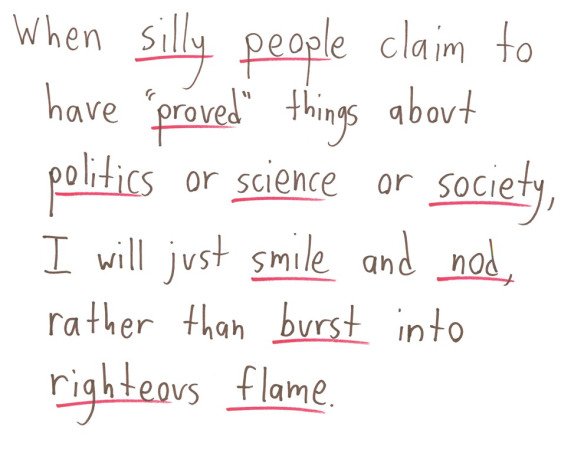 When silly people claim to
have "proved" things about
politics or science or society,
I will just smile and nod,
rather than burst into
righteous flame.